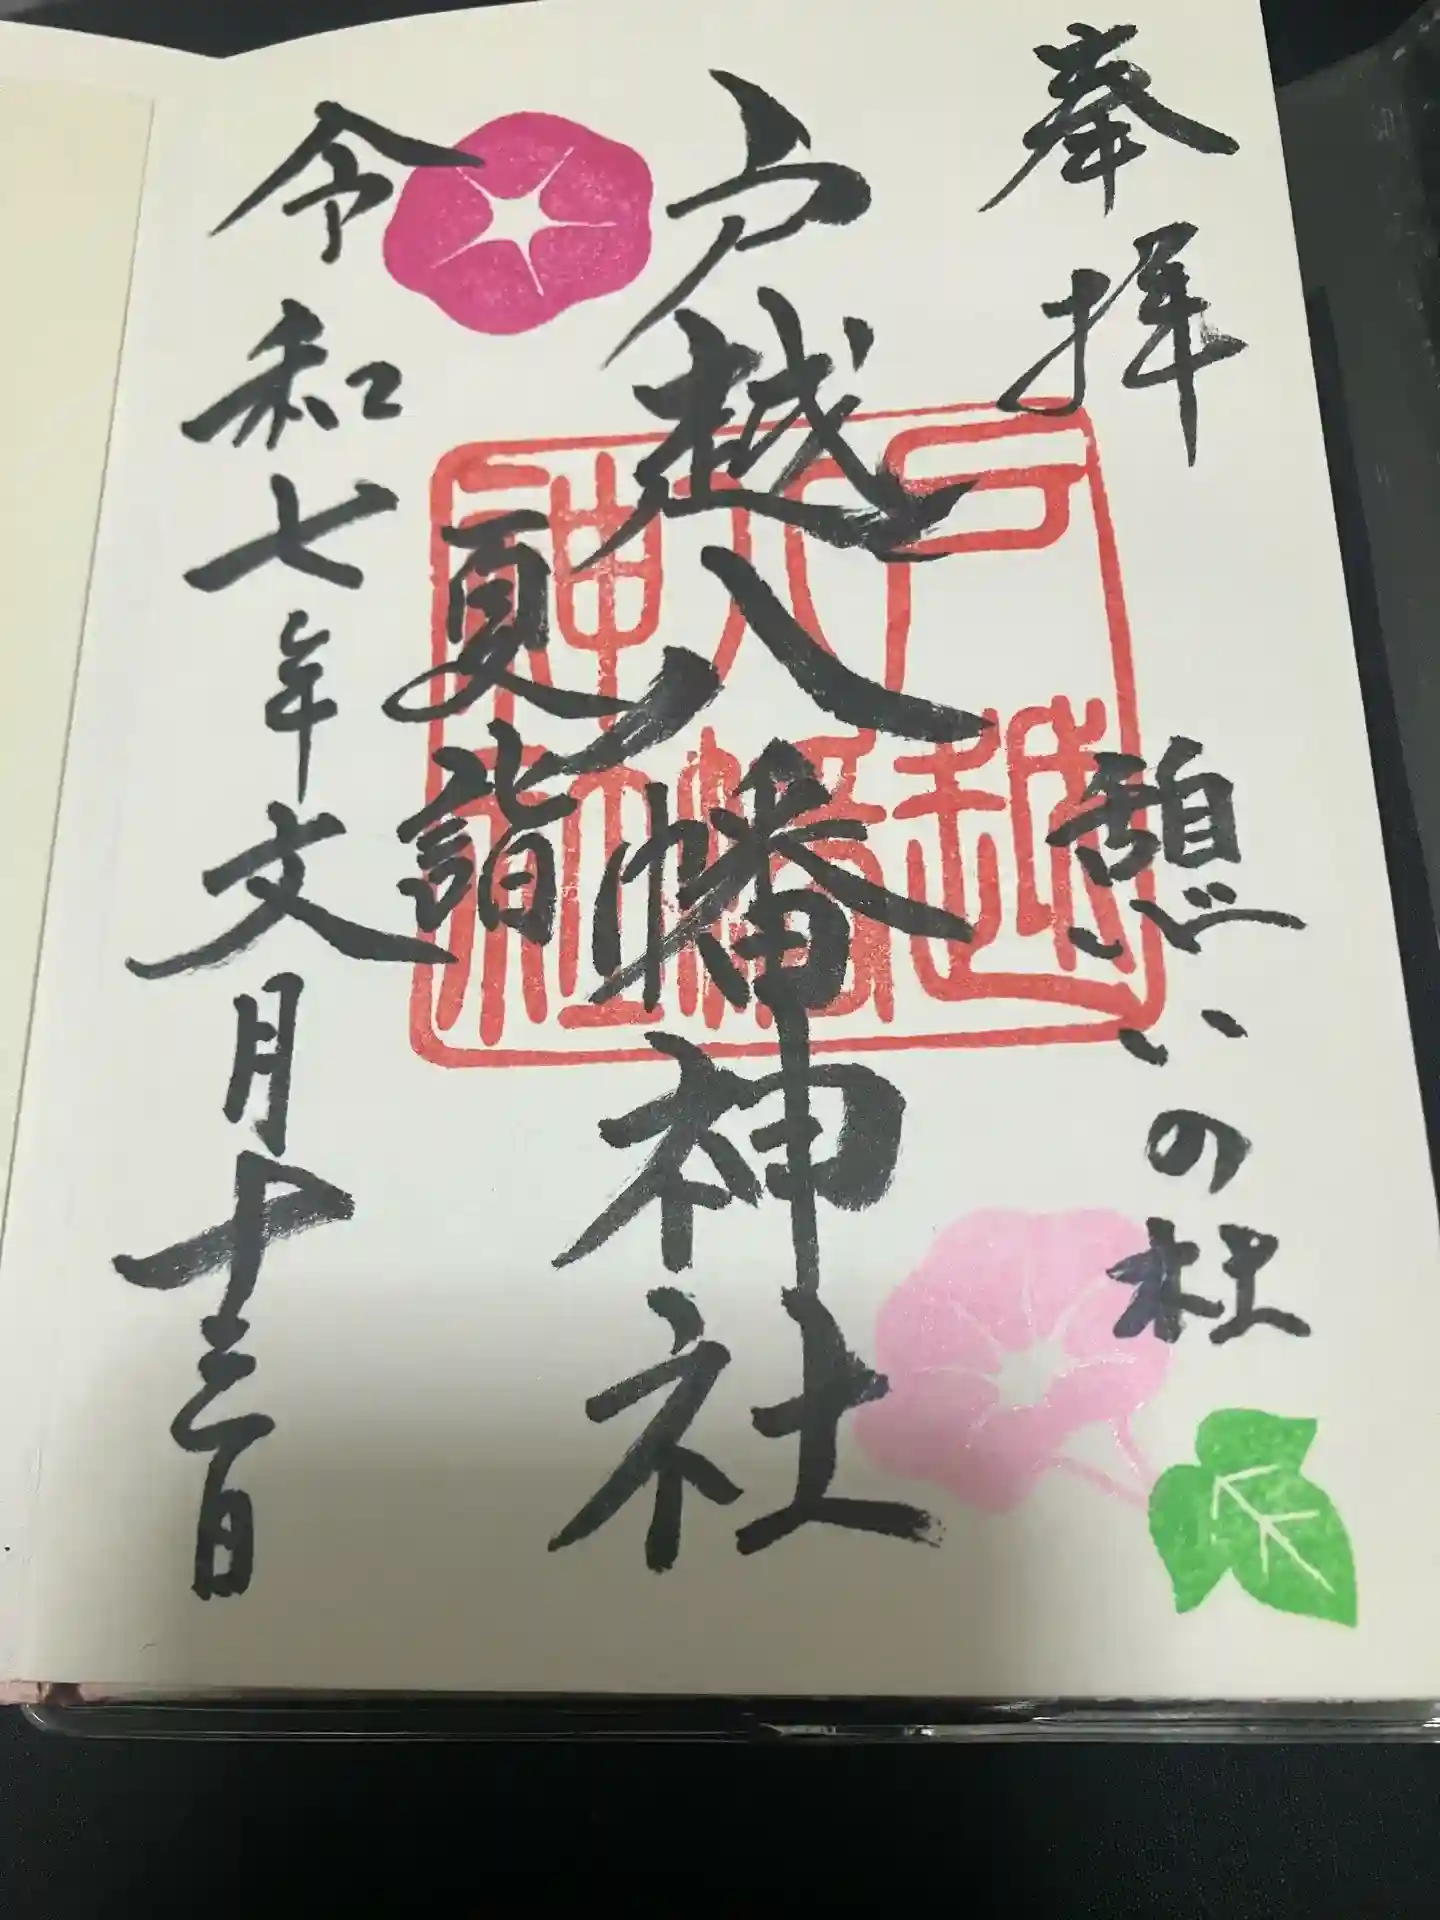 奉拝
憩いの杜
戸越八幡神社
戸越
八幡
神社
夏詣
令和七年文月十三日